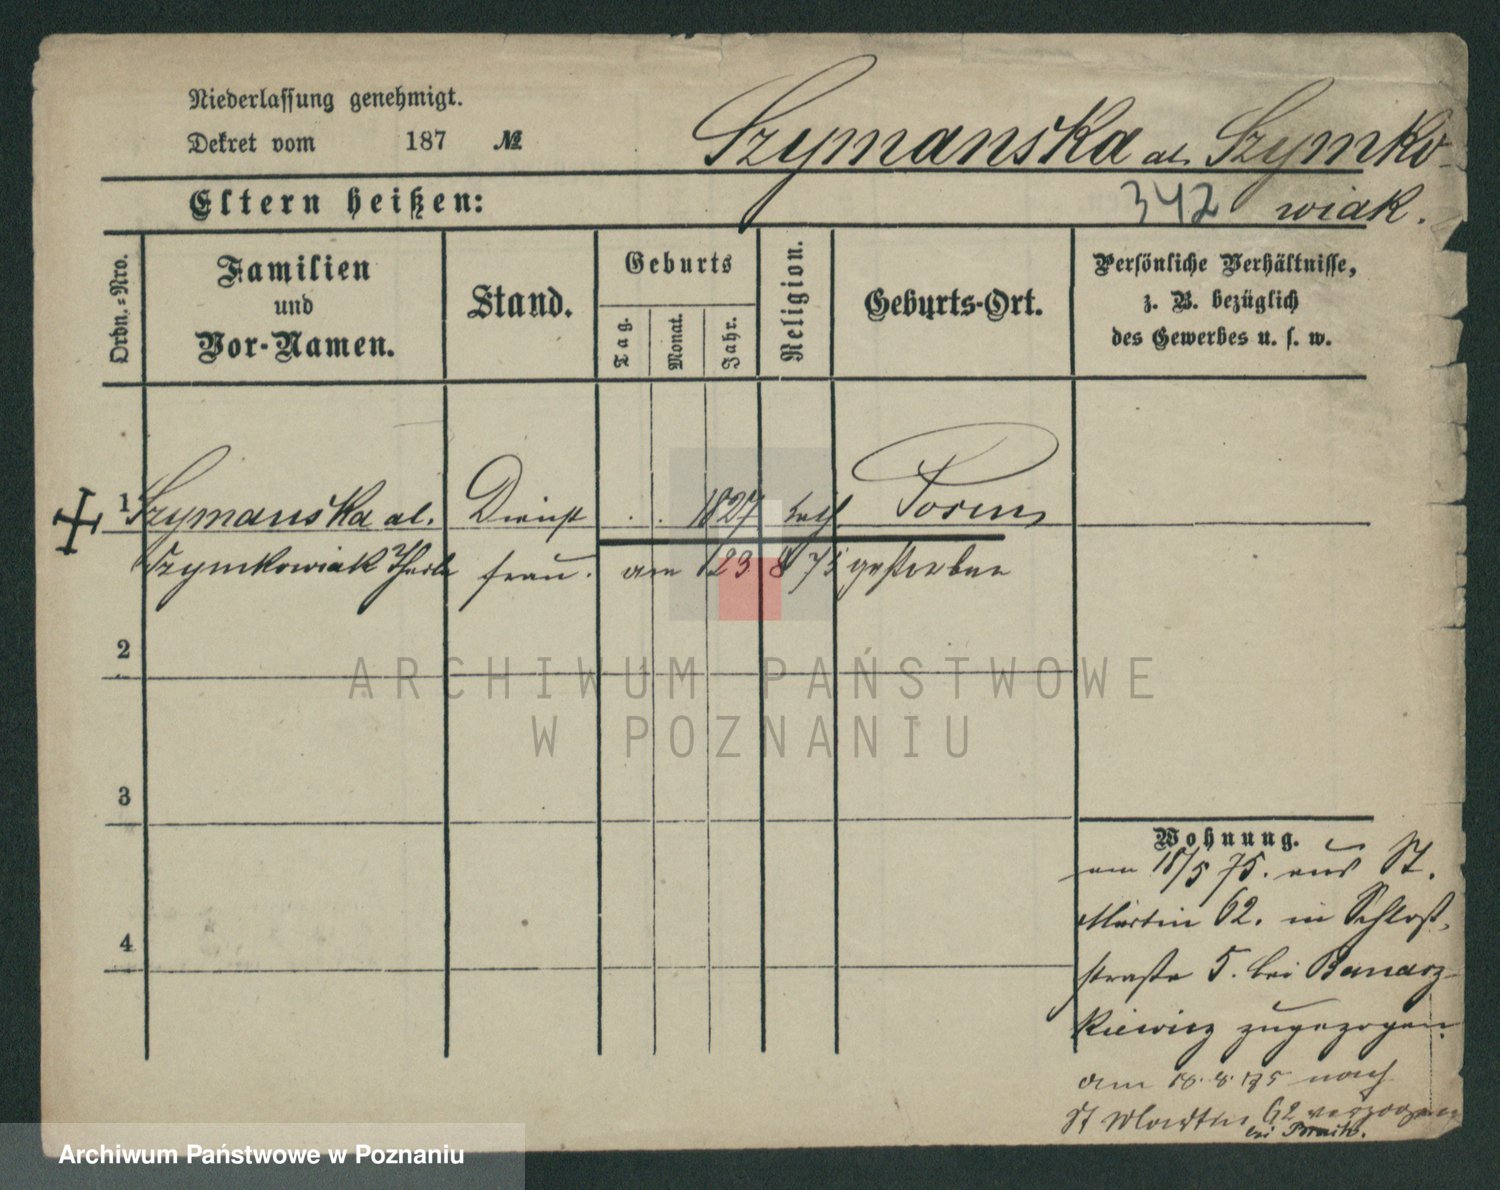 Niederlassung genehmigt.
Dekret vom 187 №
Szymanska al. Szymko-
wiak.
342
Eltern heißen:
Ordn.-Nro.
Familien
und
Vor-Namen.
Stand.
Geburts
Tag.
Monat.
Jahr.
Religion.
Geburts-Ort.
Persönliche Verhältnisse,
z. B. bezüglich
des Gewerbes u. s. w.
1 Szymanska al. Dienst . . 1827 kath Posen
Szymkowiak frau. am 23 8 75 gestorben
2
3
4
Wohnung.
am 18/5 75. aus St.
Martin 62. in Schloß-
straße 5. bei Banasz-
kiewicz zugezogen.
am 18.8.75 nach
St Martin 62 verzogen
bei
ARCHIWUM PAŃSTWOWE
W POZNANIU
Archiwum Państwowe w Poznaniu